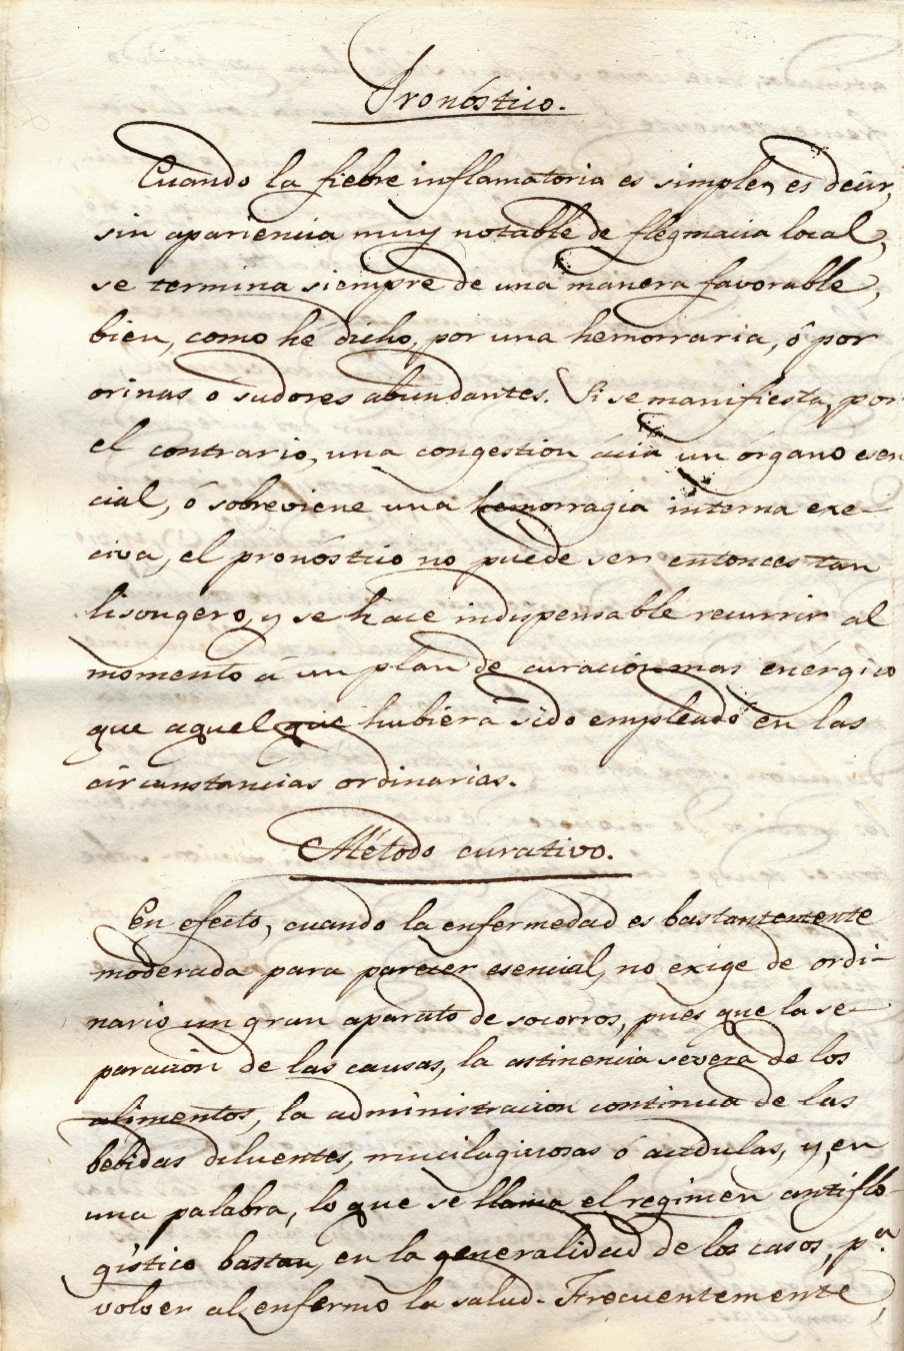 Pronóstico.
Cuando la fiebre inflamatoria es simple, es decir,
sin apariencia muy notable de flegmacia local,
se termina siempre de una manera favorable,
bien, como hé dicho, por una hemorraria, ó por
orinas ó sudores abundantes. Si se manifiesta, por
el contrario, una congestion ácia un órgano esen
cial, ó sobreviene una hemorragia interna exe-
civa, el pronóstico no puede ser entonces tan
lisongero, y se hace indispensable recurrir al
momento á un plán de curación mas enérgico
que aquel que hubiera sido empleado en las
circunstancias ordinarias.
Método curativo.
En efecto, cuando la enfermedad es bastantemente
moderada para parecer esencial, no exige de ordi-
nario un gran aparato de socorros, pues que la se-
paración de las causas, la astinencia severa de los
alimentos, la administracion continua de las
bebidas diluentes, mucilaginosas ó acidulas, y, en
una palabra, lo que se llama el regimen antiflo-
gístico bastan, en la generalidad de los casos, pª.
volver al enfermo la salud. Frecuentemente,